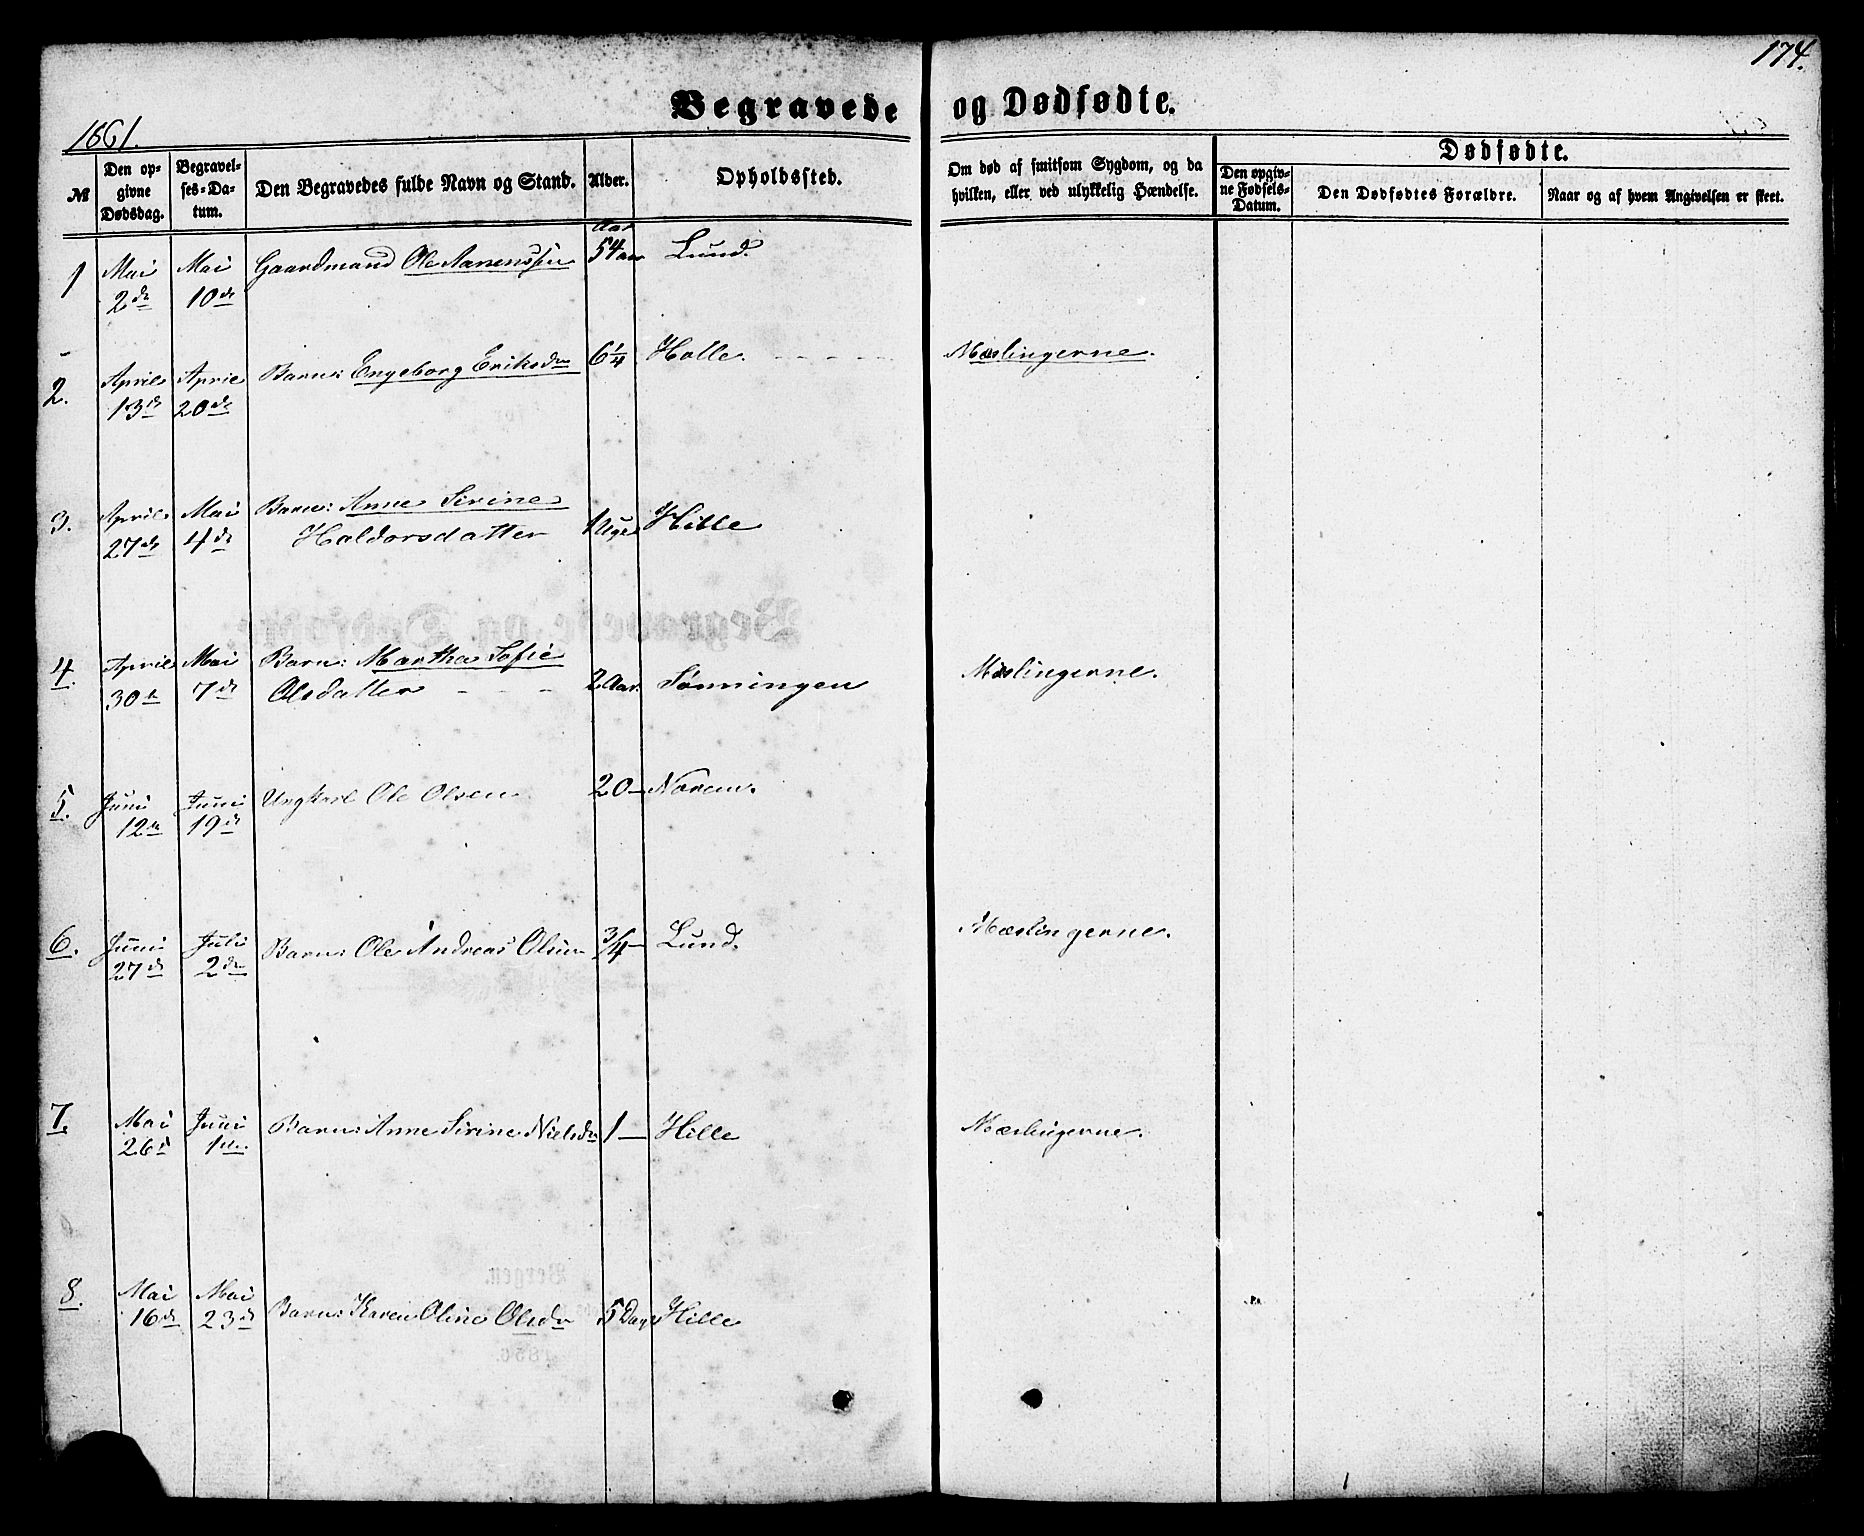 174.
Begravede og Dødfødte.
1861.
№
Den opgivne Dødsdag.
Begravelses-Datum.
Den Begravedes fulde Navn og Stand.
Alder.
Opholdssted.
Om død af smitsom Sygdom, og da hvilken, eller ved ulykkelig Hændelse.
Dødfødte.
Den opgivne Fødsels-Datum.
Den Dødfødtes Forældre.
Naar og af hvem Angivelsen er skeet.
Aar
1 Mai Mai Gaardmand Ole Aanenssen 54 Lund.
2de 10de
2. April April Barn: Engeborg Eriksdr 6¼ Holle. - - - - - Mæslingerne.
13de 20de
3. April Mai Barn: Anne Sirine
27de 4de Haldorsdatter 1 Uge Hille
4. April Mai Barn: Martha Sofie
30te 7de Olsdatter - - - 2 Aar. Sønningen Mæslingerne.
5. Juni Juni Ungkarl Ole Olsen 20 — Noren.
12te 19de
6. Juni Juli Barn: Ole Andreas Olsen ¾ — Lund. Mæslingerne.
27de 2den
7. Mai Juni Barn: Anne Sirine Nielsdr 1 — Hille Mæslingerne.
26de 1ste
8. Mai Mai Barn: Karen Oline Olsdr 5 Dage Hille
16de 23de